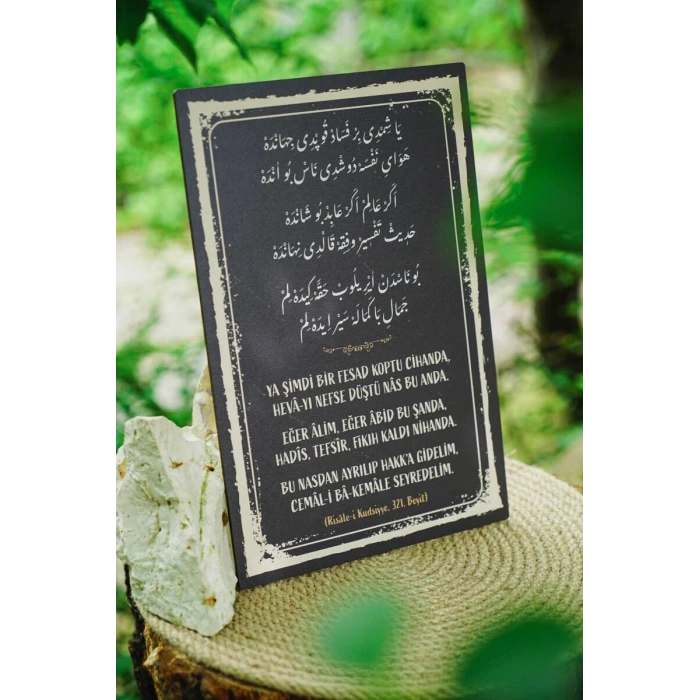 يَا شِمْدِى بِرْ فَسَادْ قُوپْدِى جِهَانْدَهْ
هَوَاىِ نَفْسَهْ دُوشْدِى نَاسْ بُو اٰنْدَهْ
اَگَرْ عَالِمْ اَگَرْ عَابِدْ بُو شَانْدَهْ
حَدِيثْ تَفْسِيرْ وفِقِهْ قَالْدِى نِهَانْدَهْ
بُو نَاسْدَنْ اَيْرِيلُوبْ حَقَّهْ گِيدَهْ لِمْ
جَمَالِ بَا كَمَالَهْ سَيْرْ اِيدَهْ لِمْ
YA ŞİMDİ BİR FESAD KOPTU CİHANDA,
HEVÂ-YI NEFSE DÜŞTÜ NÂS BU ANDA.
EĞER ÂLİM, EĞER ÂBİD BU ŞANDA,
HADÎS, TEFSÎR, FIKIH KALDI NİHANDA.
BU NASDAN AYRILIP HAKK'A GİDELİM,
CEMÂL-İ BÂ-KEMÂLE SEYREDELİM.
(Risâle-i Kudsiyye, 321. Beyit)